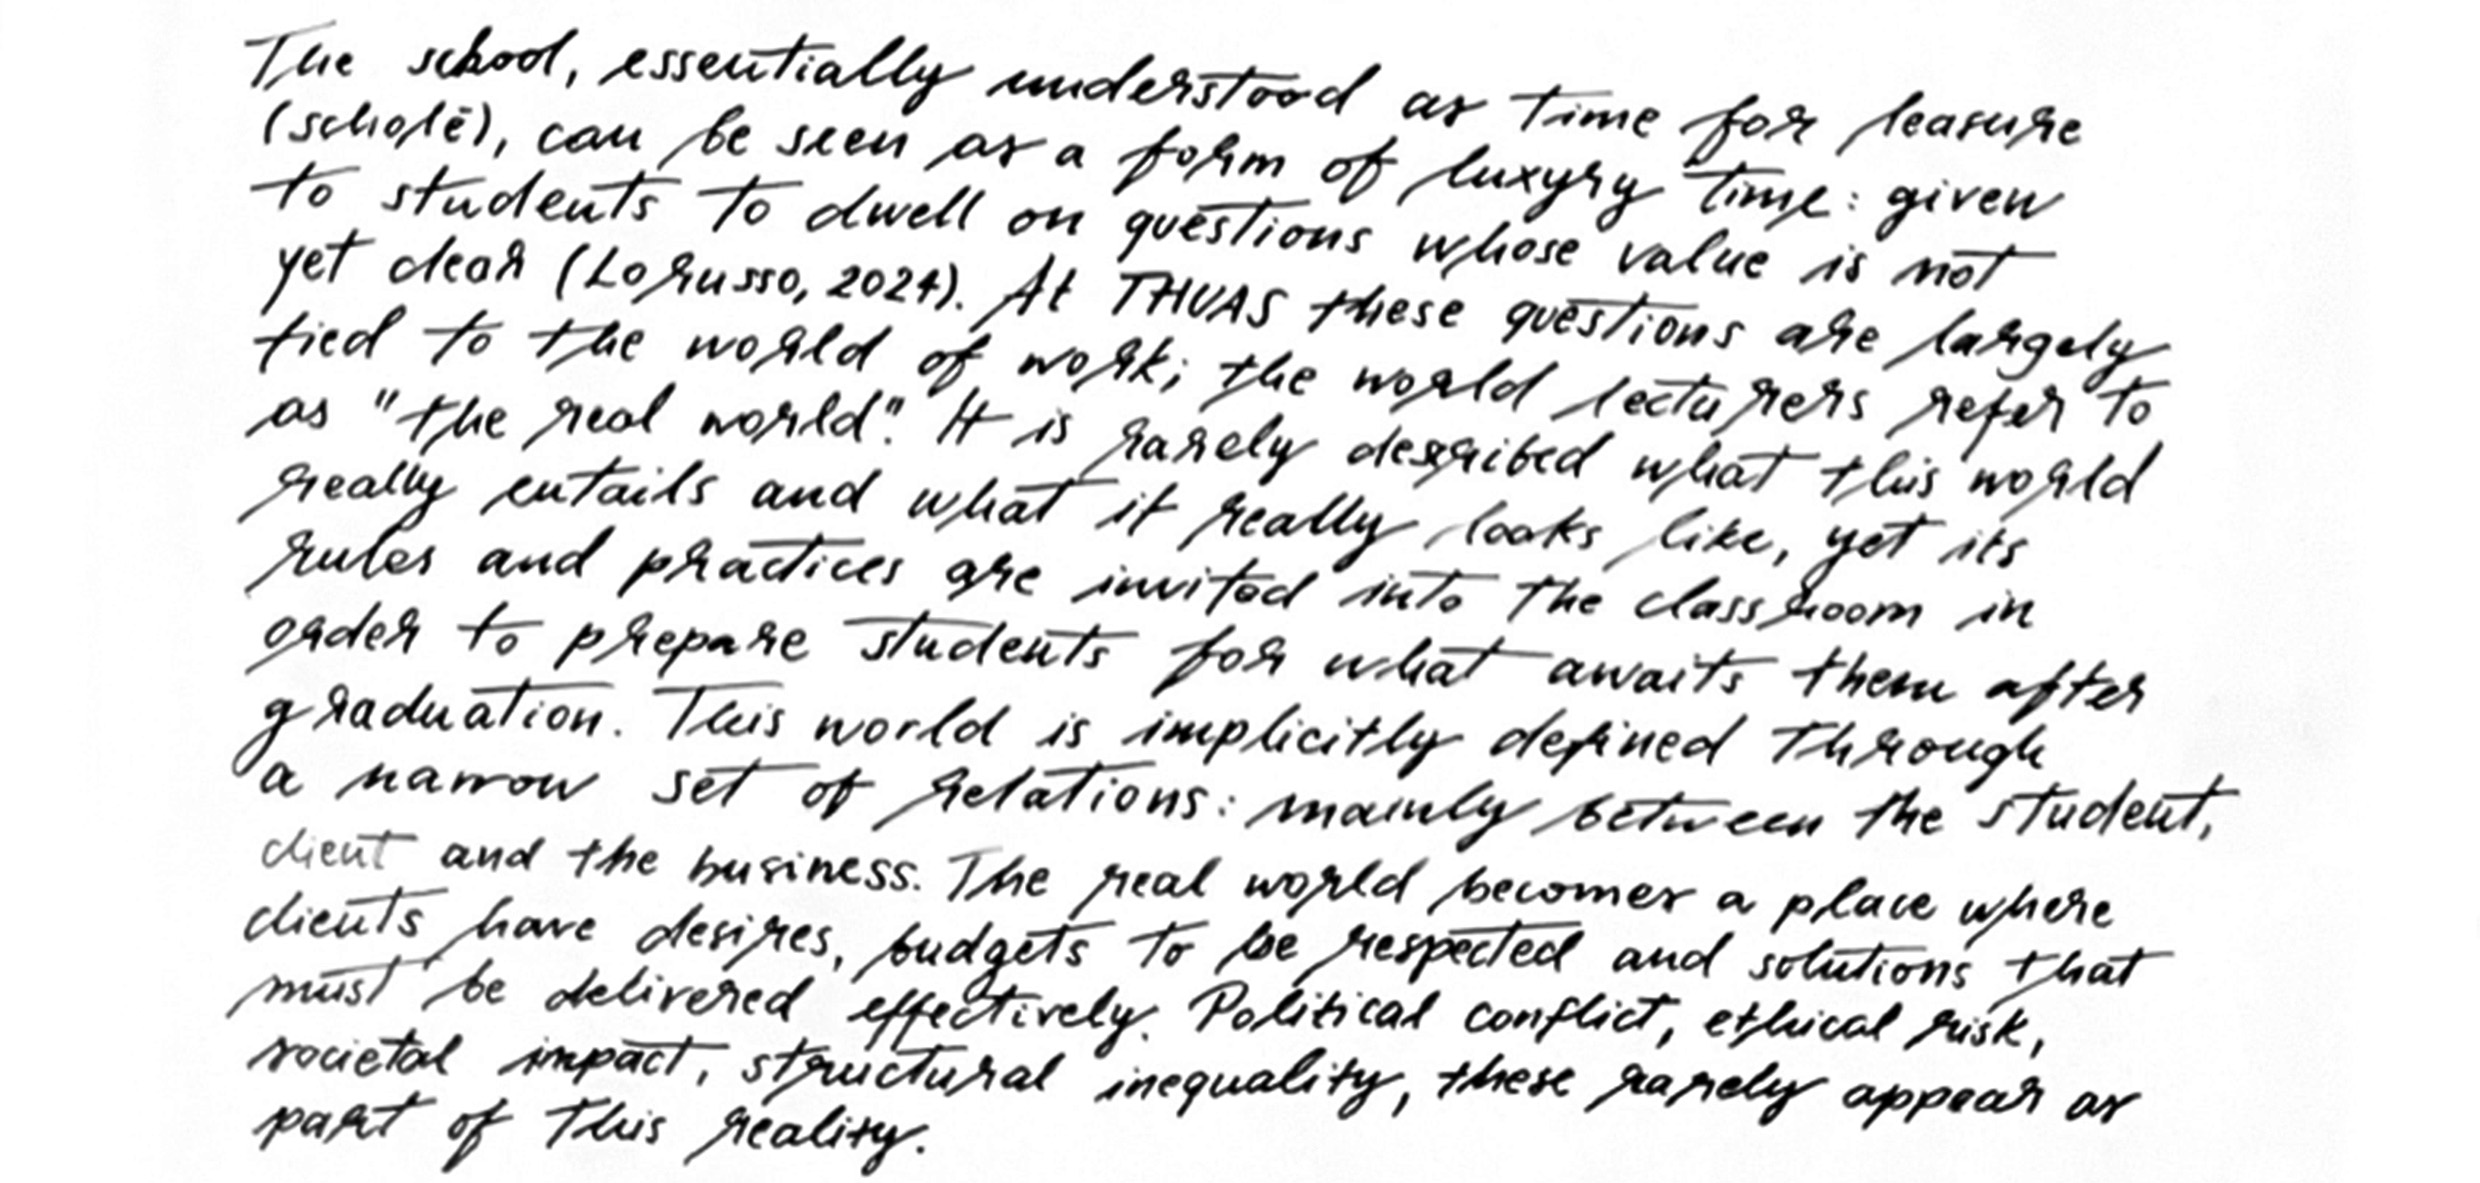 The school, essentially understood as time for leasure
(scholē), can be seen as a form of luxyry time: given
to students to dwell on questions whose value is not
yet clear (Lorusso, 2024). At THUAS these questions are largely
tied to the world of work; the world lecturers refer to
as "the real world". It is rarely described what this world
really entails and what it really looks like, yet its
rules and practices are invited into the classroom in
order to prepare students for what awaits them after
graduation. This world is implicitly defined through
a narrow set of relations: mainly between the student,
client and the business. The real world becomes a place where
clients have desires, budgets to be respected and solutions that
must be delivered effectively. Political conflict, ethical risk,
societal impact, structural inequality, these rarely appear as
part of this reality.